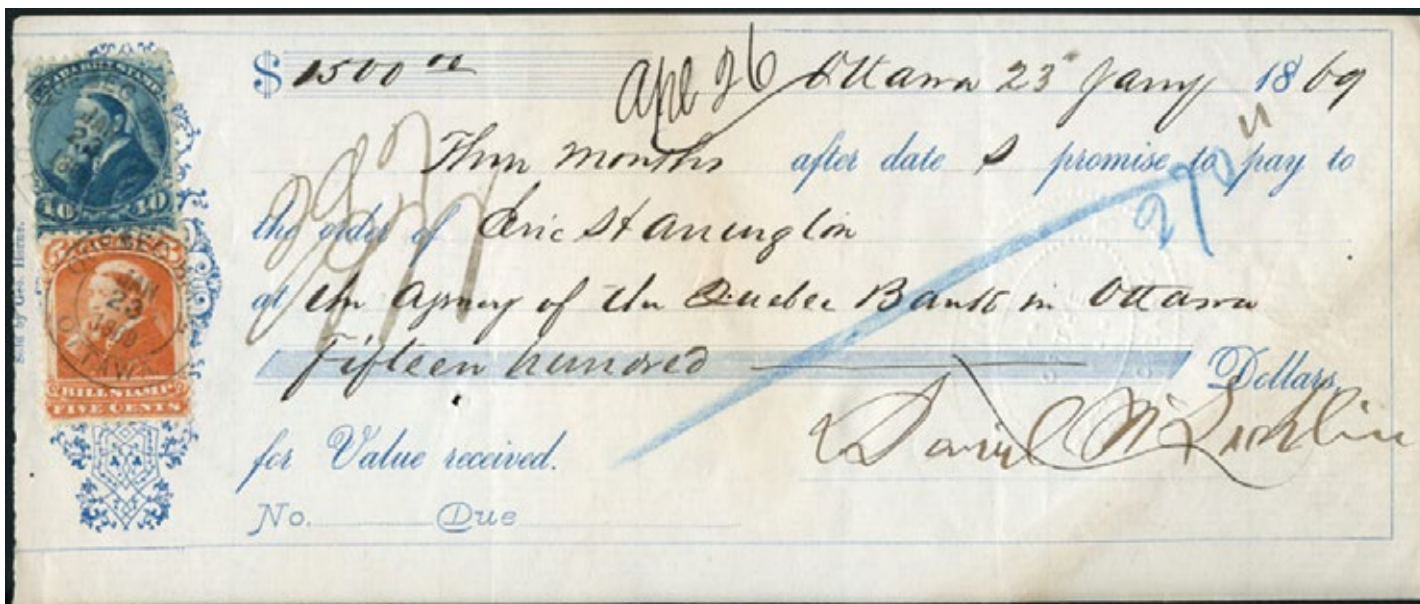 $ 1500 00 Apl 26 Ottawa 23 Jany 1869
Three months after date I promise to pay to
the order of Eric Harrington
at the Agency of the Quebec Bank in Ottawa
Fifteen hundred Dollars
for Value received.
David
No. Due
BILL STAMP
10 10
JAN
23
OTTAWA
BILL STAMP
FIVE CENTS
270